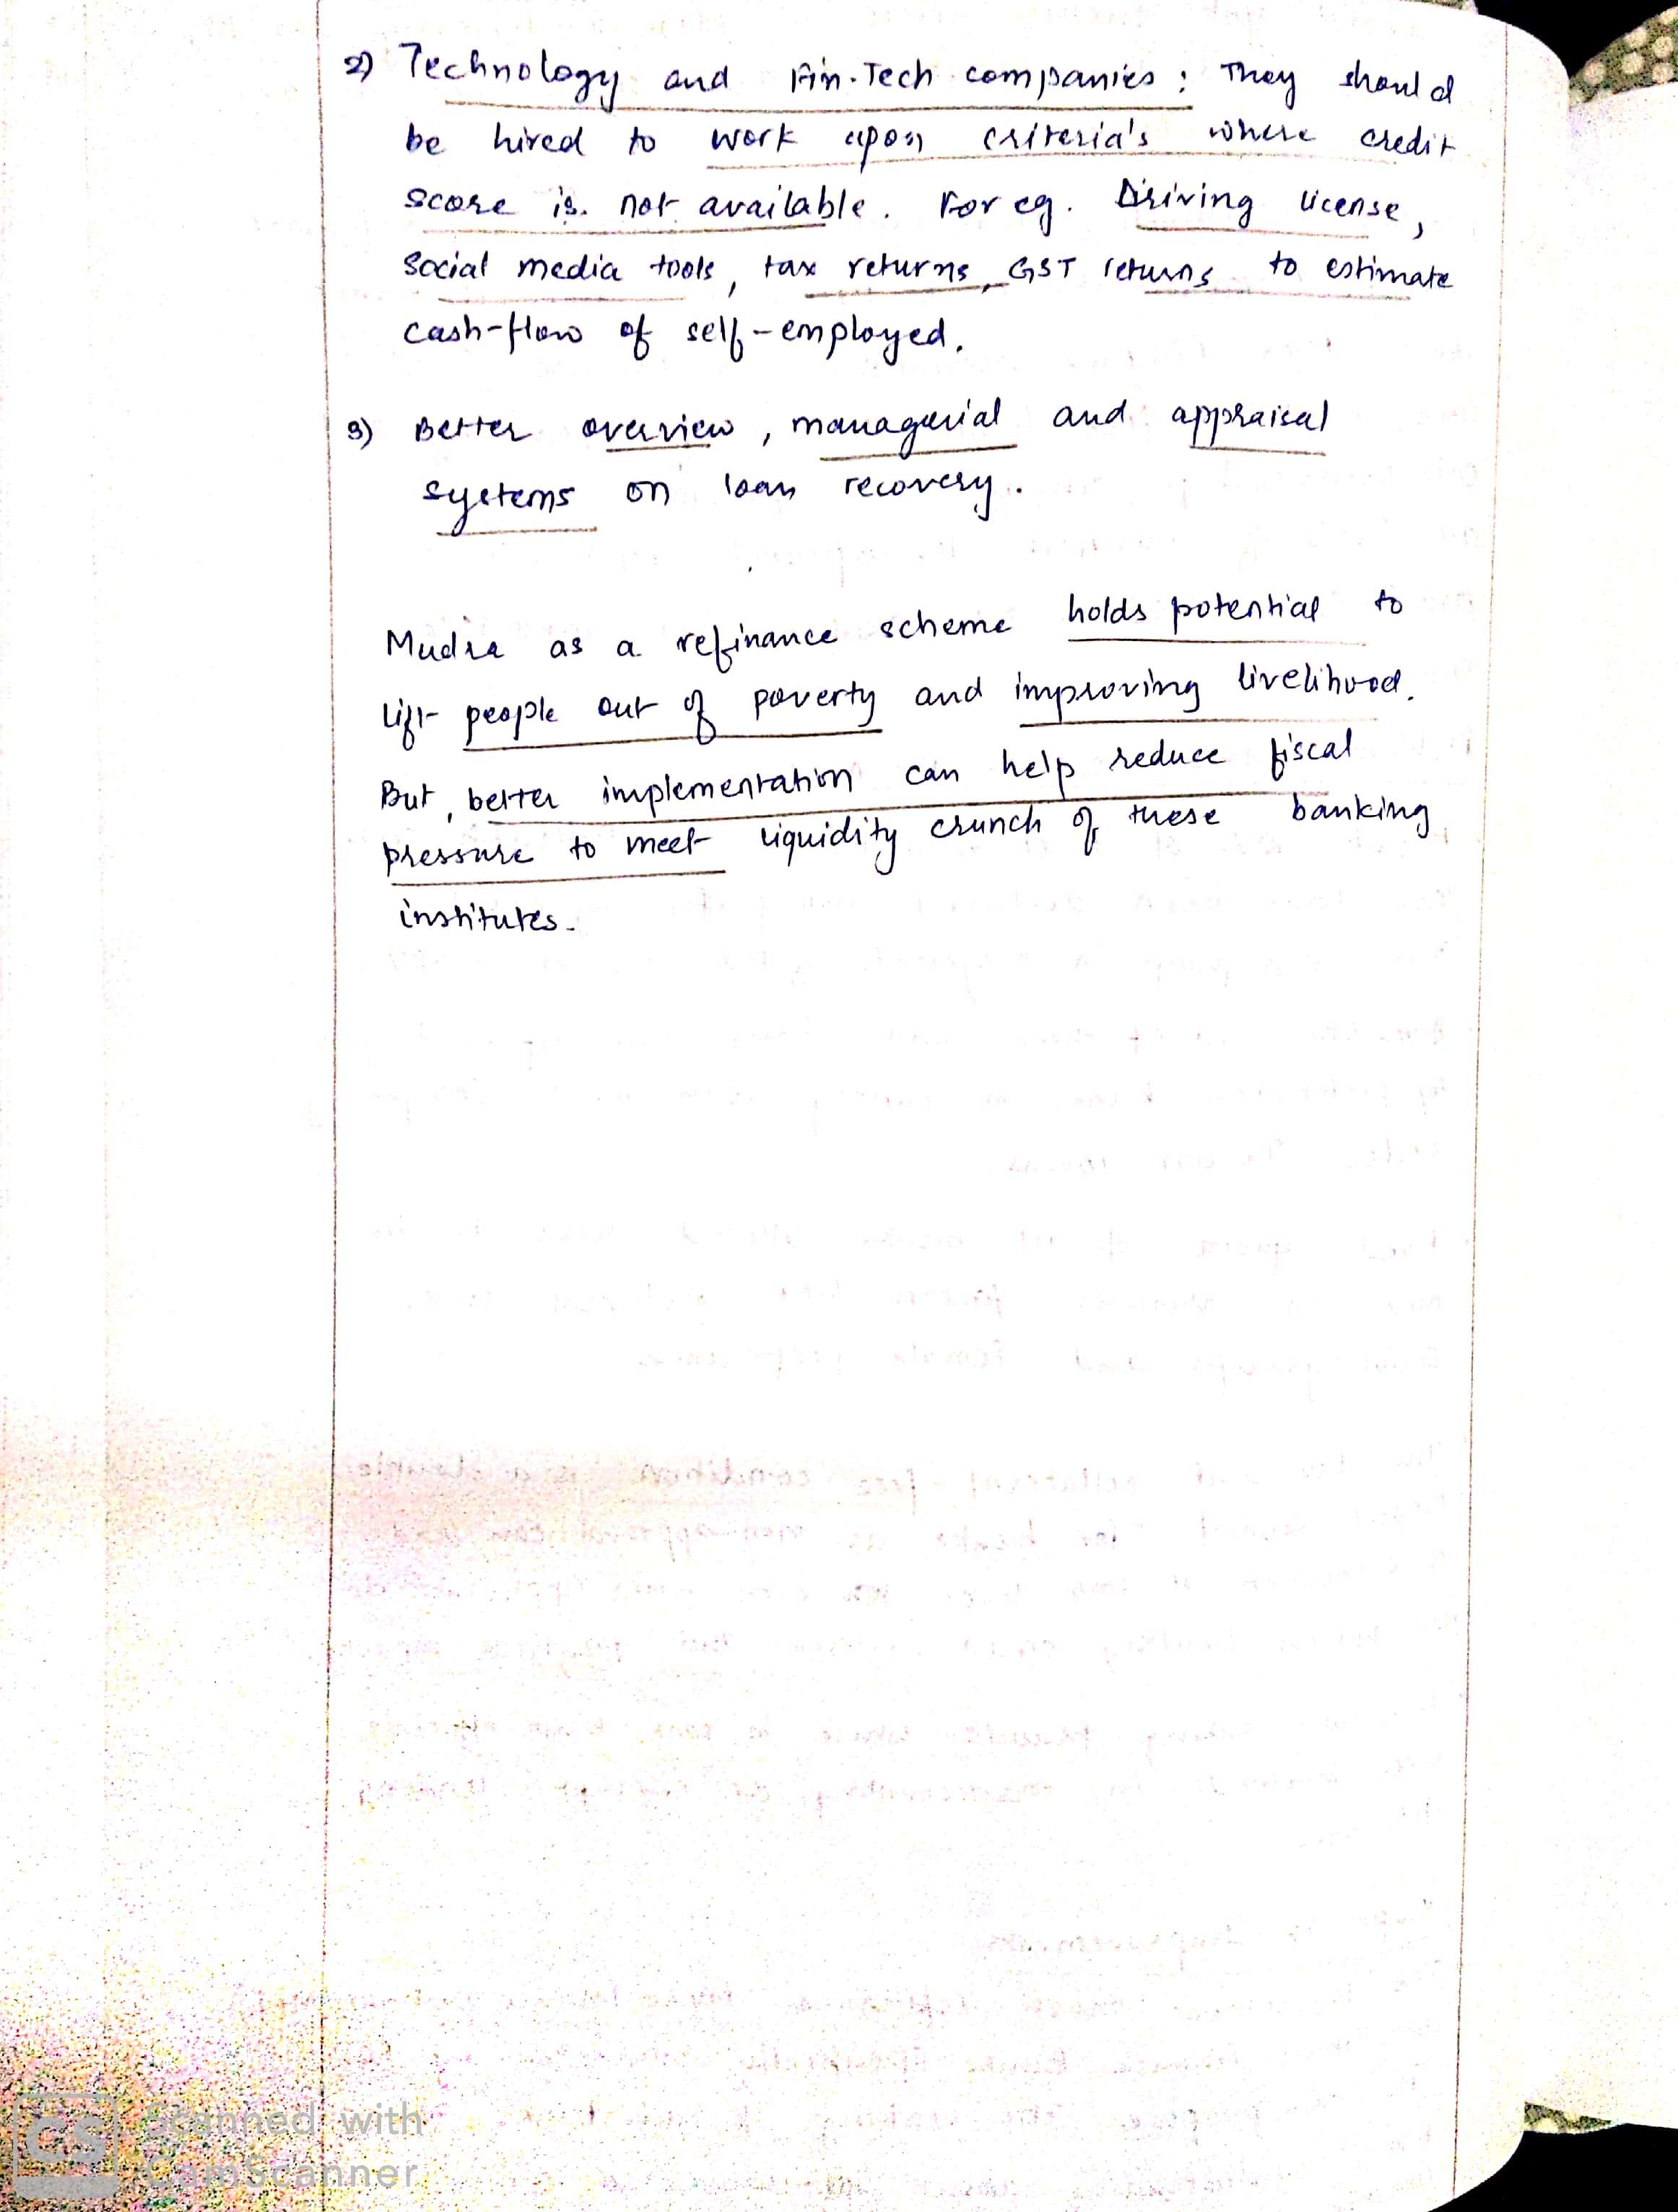 2) Technology and Fin-Tech companies : They should
be hired to work upon criteria's where credit
score is not available. For eg. Driving license,
social media tools, tax returns, GST returns to estimate
cash-flow of self-employed.
3) Better overview, managerial and appraisal
systems on loan recovery.
Mudra as a refinance scheme holds potential to
lift people out of poverty and improving livelihood.
But, better implementation can help reduce fiscal
pressure to meet liquidity crunch of these banking
institutes.
CS Scanned with
CamScanner